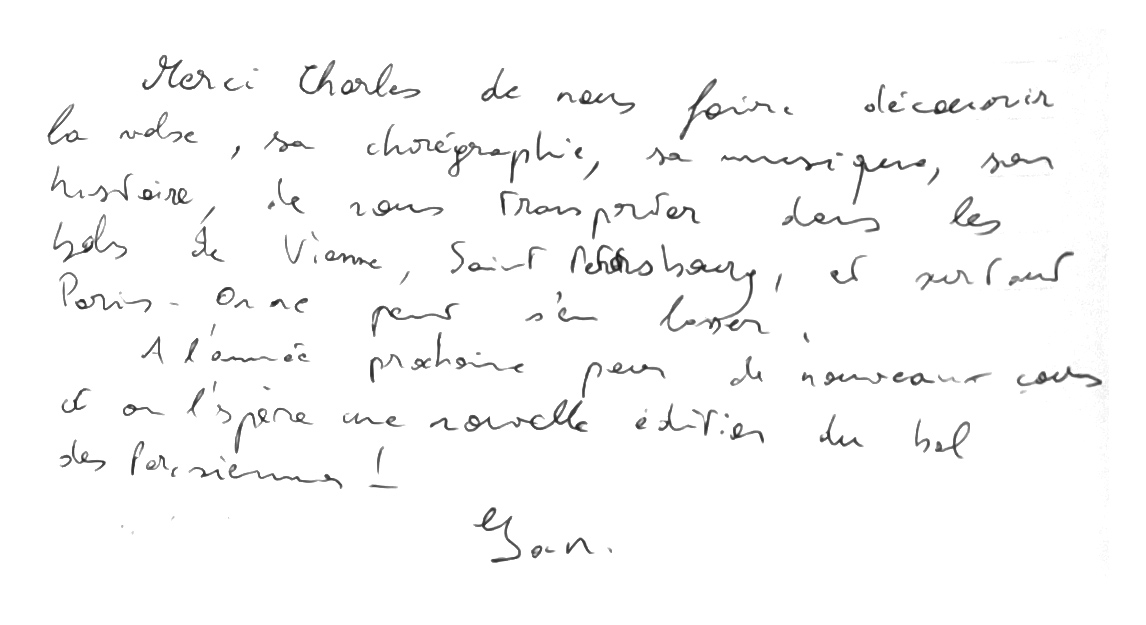 Merci Charles de nous faire découvrir
la valse, sa chorégraphie, sa musique, son
histoire, de nous transporter dans les
bals de Vienne, Saint Petersbourg, et surtout
Paris - On ne peut s'en lasser.
A l'année prochaine pour de nouveaux cours
et on l'espère une nouvelle édition du bal
des Parisiennes !
Yoan.